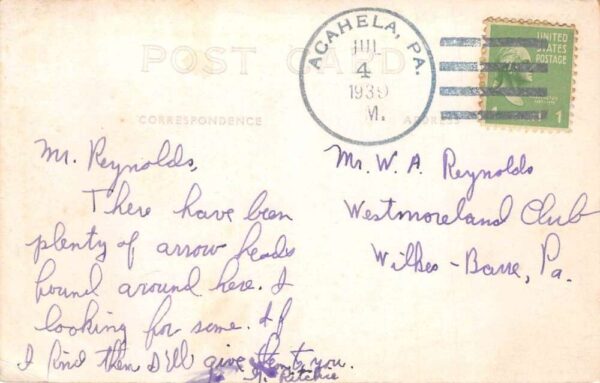 POST CARD
CORRESPONDENCE
ADDRESS
ACAHELA, PA.
JUL
4
1939
M.
UNITED
STATES
POSTAGE
1 1
Mr. Reynolds,
There have been
plenty of arrow heads
found around here. I
looking for some. If
I find them I'll give them to you.
Ritchie
Mr. W. A. Reynolds
Westmoreland Club
Wilkes-Barre, Pa.